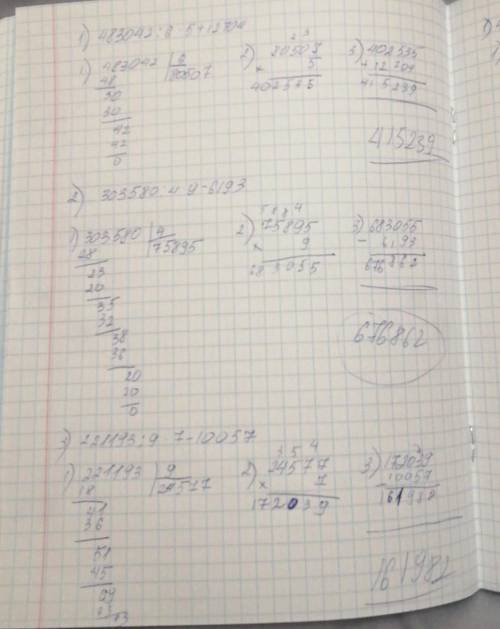 1) 483042:6·5+12704
1) 483042 |6
48 80507
30
30
42
42
0
2) 80507
× 5
402535
3) 402535
+ 12704
415239
415239
2) 303580:4·9-6193
1) 303580 |4
28 75895
23
20
35
32
38
36
20
20
0
2) 75895
× 9
683055
3) 683055
- 6193
676862
676862
3) 221193:9·7-10057
1) 221193 |9
18 24577
41
36
51
45
69
63
2) 24577
× 7
172039
3) 172039
10057
161982
161982